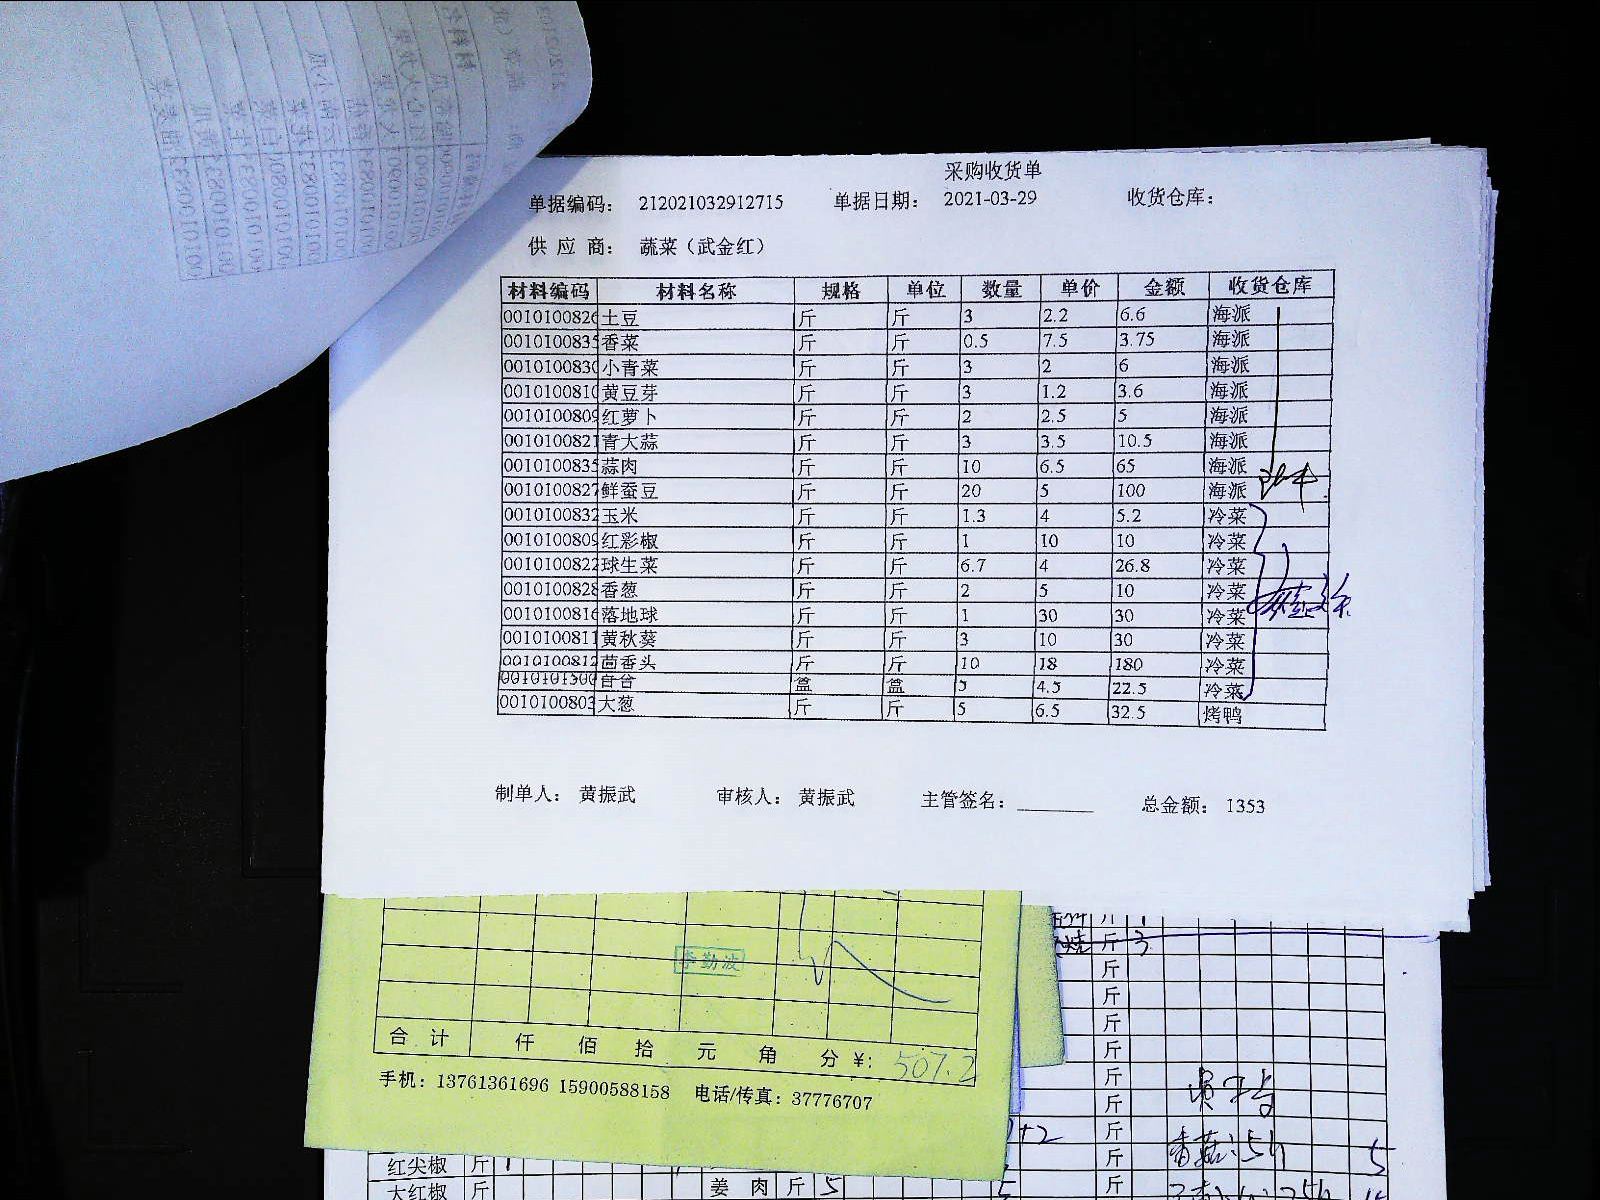 采购收货单
单据编码： 212021032912715 单据日期： 2021-03-29 收货仓库：
供 应 商： 蔬菜（武金红）
材料编码 材料名称 规格 单位 数量 单价 金额 收货仓库
0010100826 土豆 斤 斤 3 2.2 6.6 海派
0010100835 香菜 斤 斤 0.5 7.5 3.75 海派
0010100830 小青菜 斤 斤 3 2 6 海派
0010100810 黄豆芽 斤 斤 3 1.2 3.6 海派
0010100809 红萝卜 斤 斤 2 2.5 5 海派
0010100821 青大蒜 斤 斤 3 3.5 10.5 海派
0010100835 蒜肉 斤 斤 10 6.5 65 海派
0010100827 鲜蚕豆 斤 斤 20 5 100 海派
0010100832 玉米 斤 斤 1.3 4 5.2 冷菜
0010100809 红彩椒 斤 斤 1 10 10 冷菜
0010100822 球生菜 斤 斤 6.7 4 26.8 冷菜
0010100828 香葱 斤 斤 2 5 10 冷菜
0010100816 落地球 斤 斤 1 30 30 冷菜
0010100811 黄秋葵 斤 斤 3 10 30 冷菜
0010100812 茴香头 斤 斤 10 18 180 冷菜
0010101300 盒 盒 5 4.5 22.5 冷菜
0010100803 大葱 斤 斤 5 6.5 32.5 烤鸭
制单人： 黄振武 审核人： 黄振武 主管签名： 总金额： 1353
斤 3
斤
斤
斤
斤
李勤波
合 计 仟 佰 拾 元 角 分 ¥: 507.2
手机：13761361696 15900588158 电话/传真：37776707
斤
斤
+2 斤
红尖椒 斤 1 斤 香菇 5
大红椒 斤 姜 肉 斤 5 斤